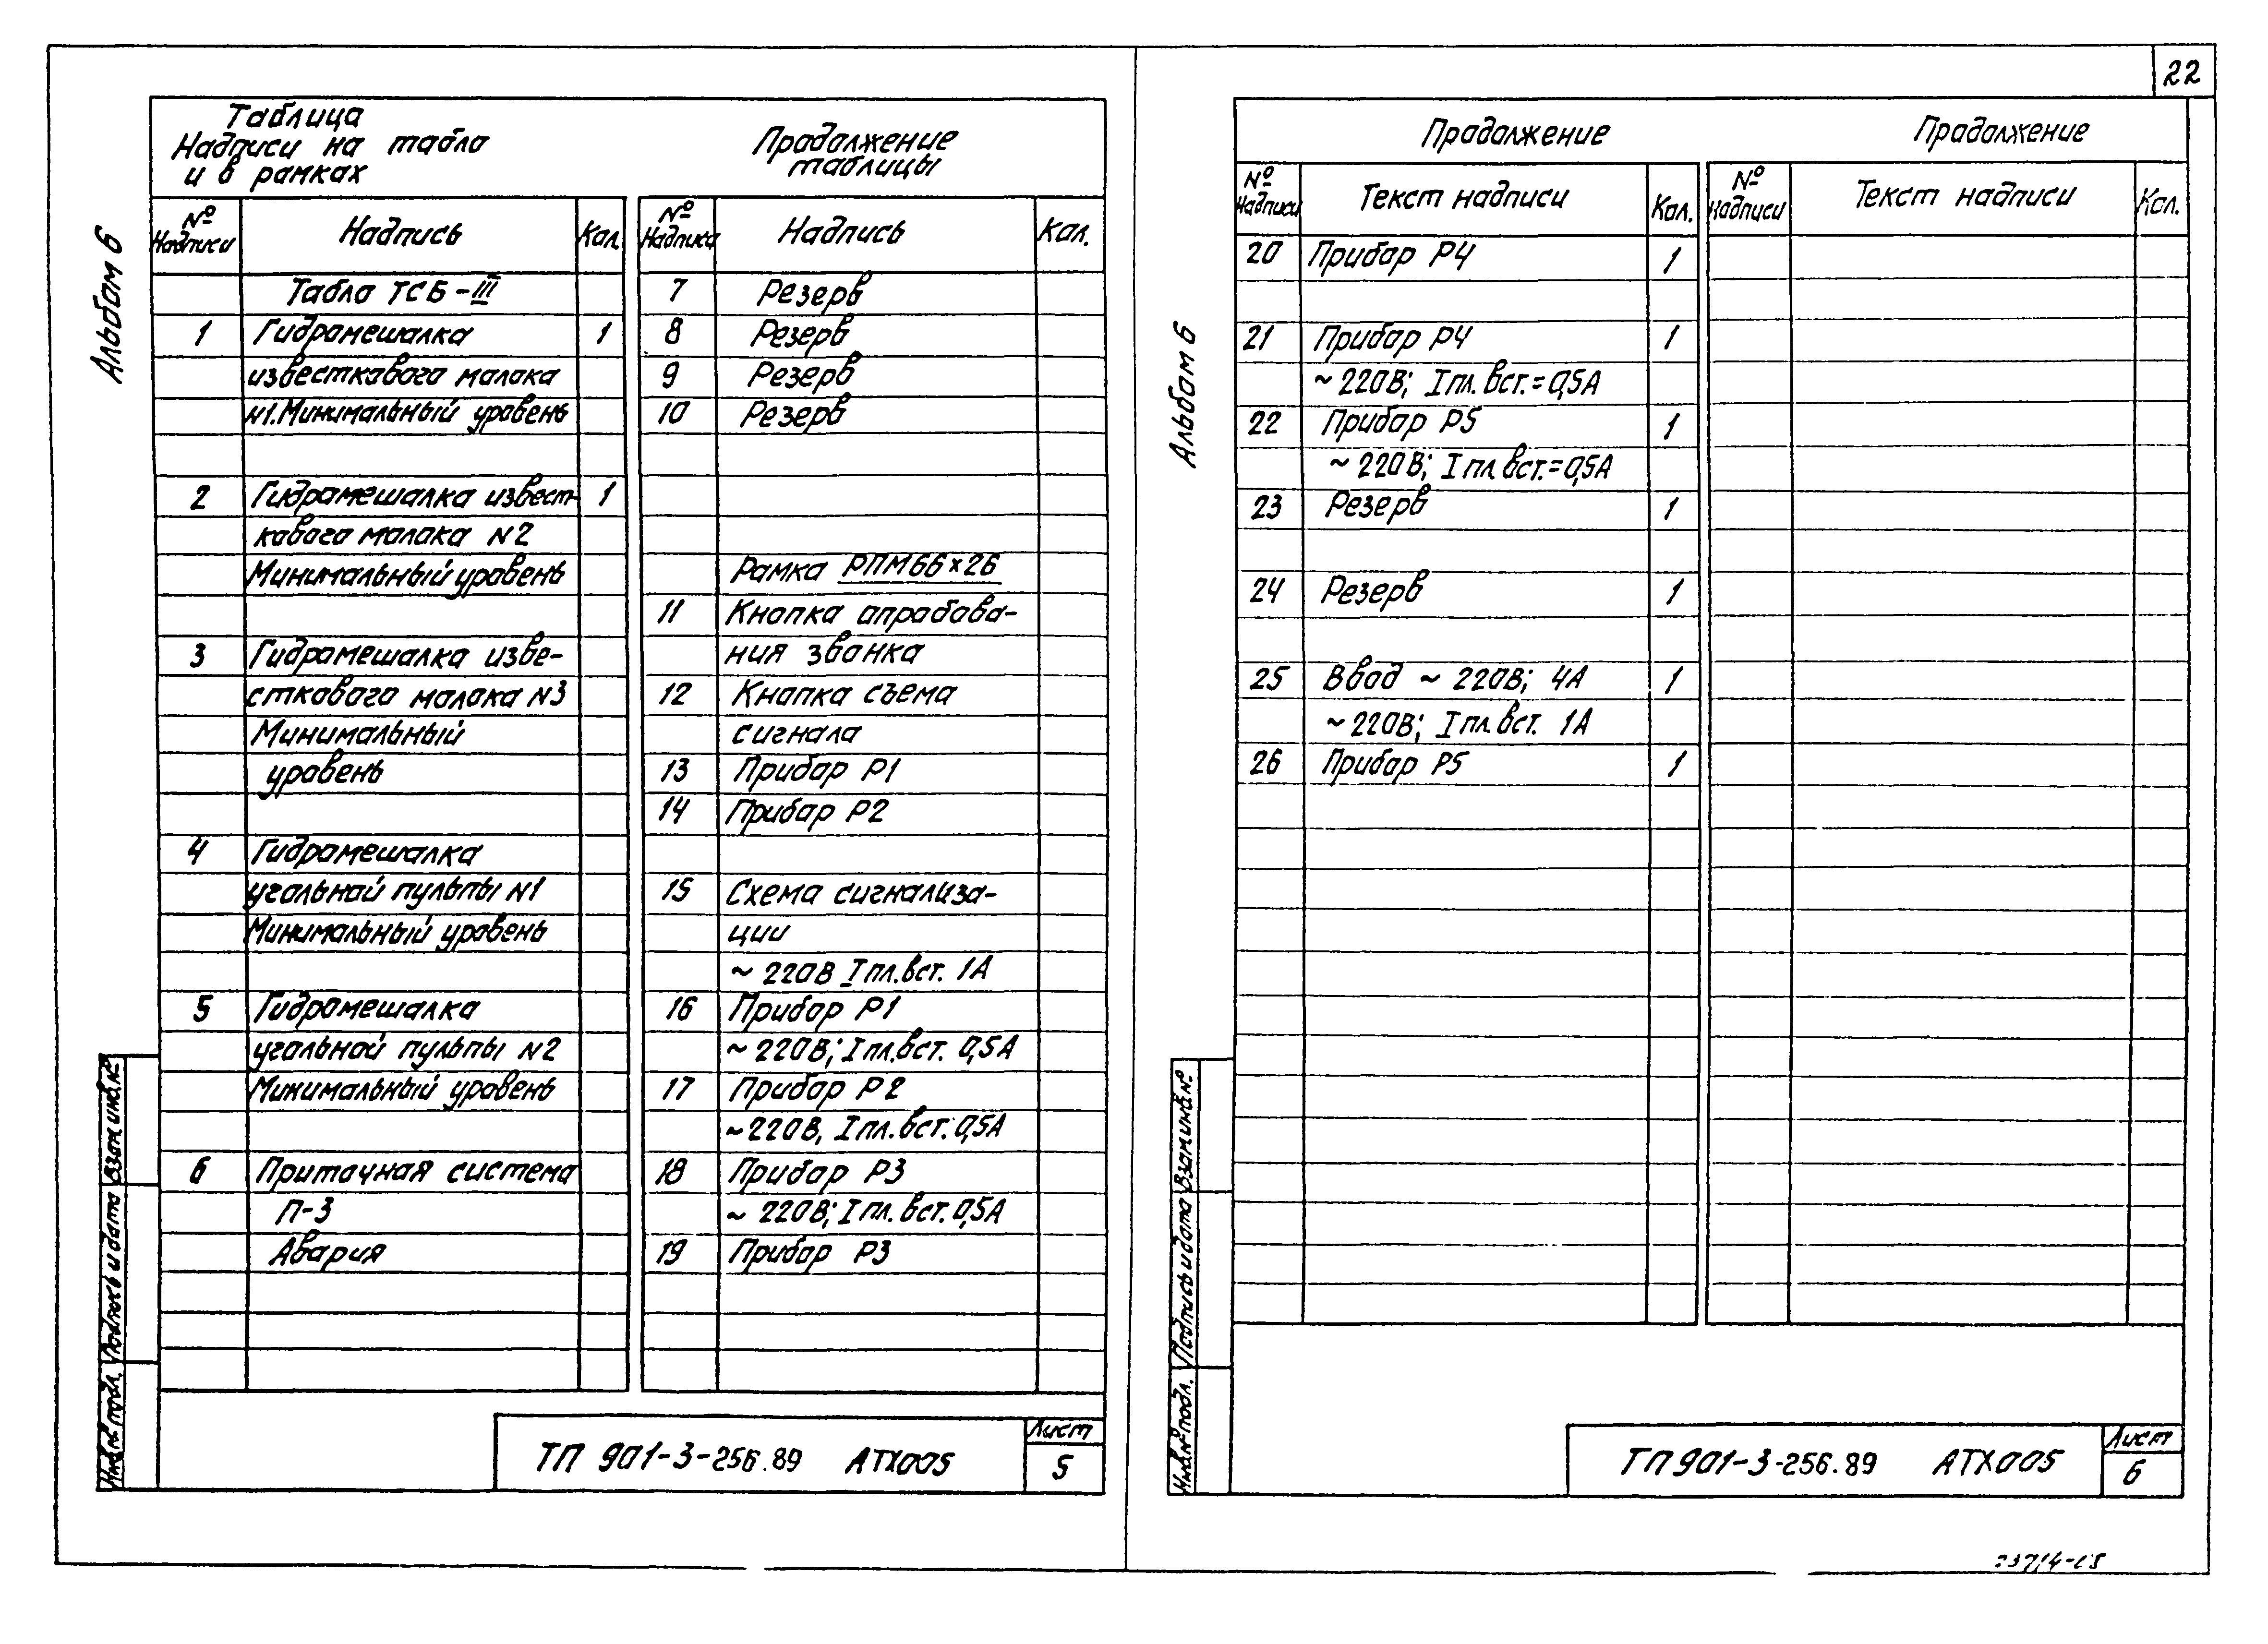 22
Альбом 6
Таблица
Надписи на табло
и в рамках
Продолжение
таблицы
№
Надписи
Надпись
Кол.
№
Надписи
Надпись
Кол.
Табло ТСБ-III
1 Гидромешалка 1
известкового молока
N1. Минимальный уровень
2 Гидромешалка извест- 1
кового молока N2
Минимальный уровень
3 Гидромешалка изве-
сткового молока N3
Минимальный
уровень
4 Гидромешалка
угольной пульпы N1
Минимальный уровень
5 Гидромешалка
угольной пульпы N2
Минимальный уровень
6 Приточная система
П-3
Авария
7 Резерв
8 Резерв
9 Резерв
10 Резерв
Рамка РПМ 66×26
11 Кнопка опробова-
ния звонка
12 Кнопка съема
сигнала
13 Прибор Р1
14 Прибор Р2
15 Схема сигнализа-
ции
~ 220В I пл.вст. 1А
16 Прибор Р1
~ 220В; I пл.вст. 0,5А
17 Прибор Р2
~ 220В, I пл.вст. 0,5А
18 Прибор Р3
~ 220В; I пл.вст. 0,5А
19 Прибор Р3
Взам.инв.№
Подпись и дата
Инв.№ подл.
ТП 901-3-256.89 АТХ005
Лист
5
Альбом 6
Продолжение
Продолжение
№
Надписи
Текст надписи
Кол.
№
Надписи
Текст надписи
Кол.
20 Прибор Р4 1
21 Прибор Р4 1
~ 220В; I пл.вст.=0,5А
22 Прибор Р5 1
~ 220В; I пл.вст.=0,5А
23 Резерв 1
24 Резерв 1
25 Ввод ~ 220В; 4А 1
~ 220В; I пл.вст. 1А
26 Прибор Р5 1
Взам.инв.№
Подпись и дата
Инв.№ подл.
ТП 901-3-256.89 АТХ005
Лист
6